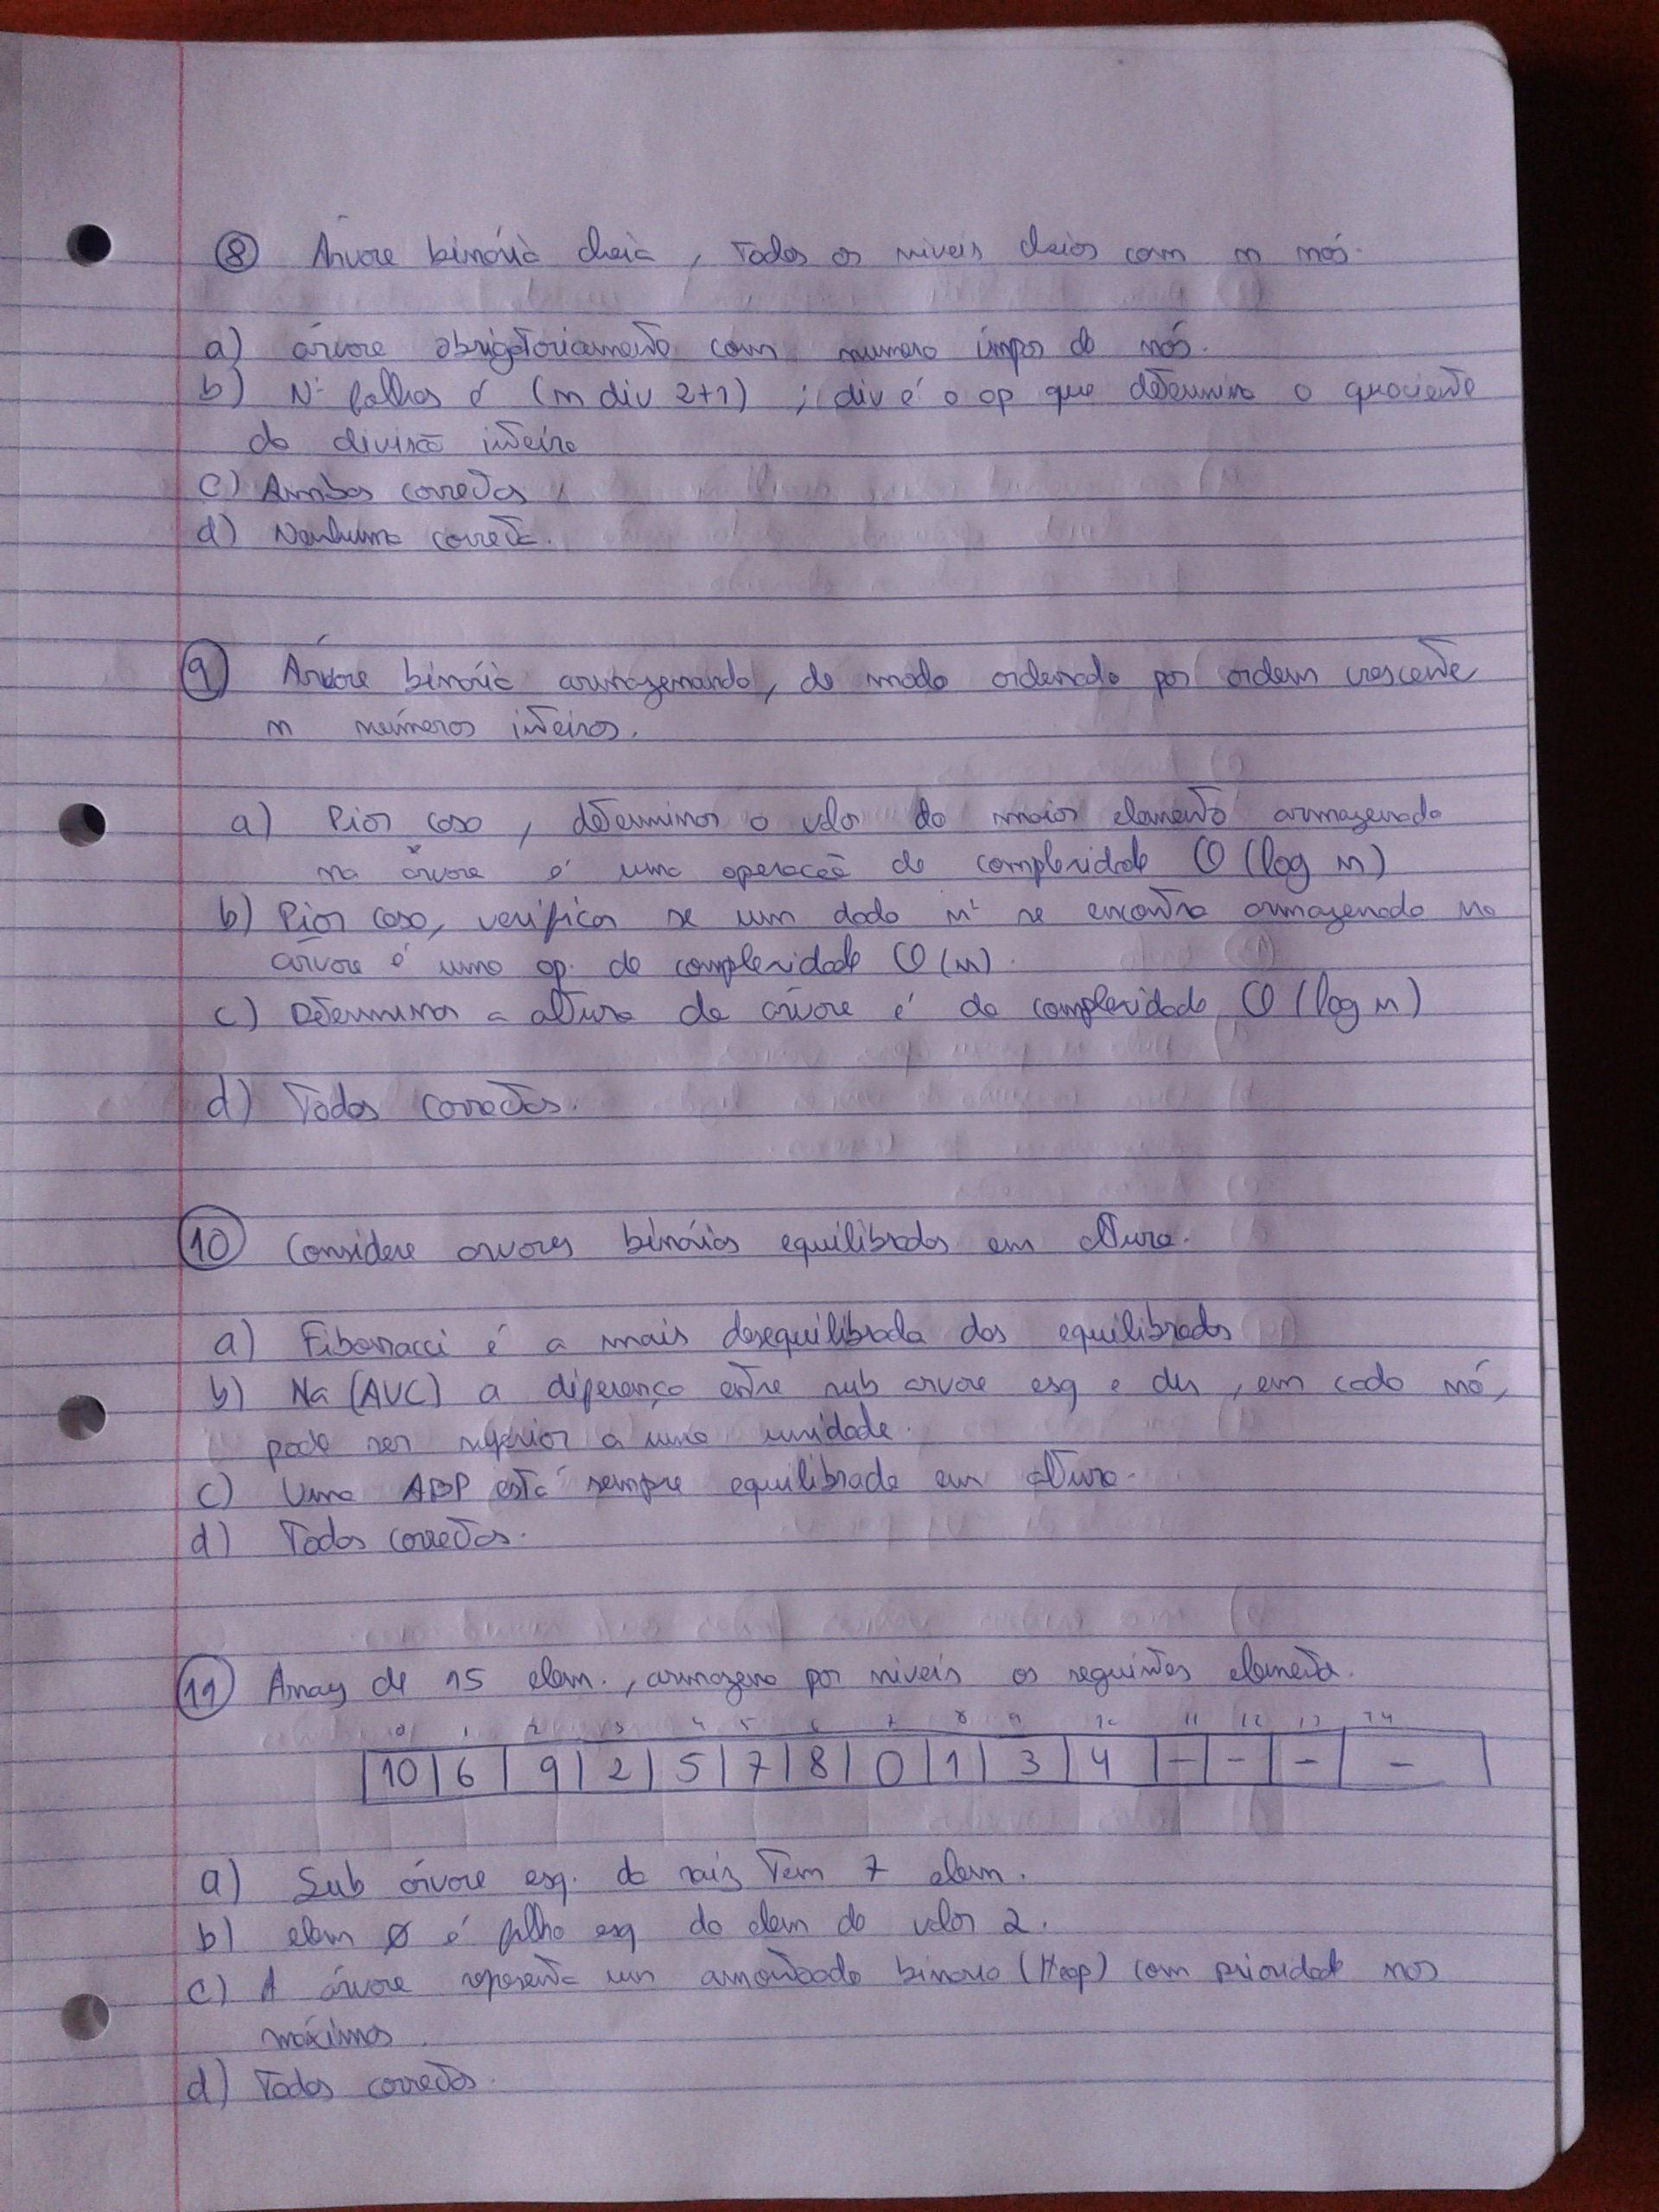 ⑧ Árvore binária cheia, todos os niveis cheios com n nós.
a) árvore obrigatoriamente com numero ímpar de nós.
b) Nº folhas é (n div 2+1) ; div é o op que determina o quociente
da divisão inteira
c) Ambas corretas
d) Nenhuma correta.
⑨ Árvore binária armazenando, de modo ordenado por ordem crescente
n números inteiros.
a) Pior caso, determinar o valor do maior elemento armazenado
na árvore é uma operação de complexidade O(log n)
b) Pior caso, verificar se um dado nº se encontra armazenado na
árvore é uma op. de complexidade O(n).
c) Determinar a altura da árvore é de complexidade O(log n)
d) Todas corretas.
⑩ Considere arvores binárias equilibradas em altura.
a) Fibonacci é a mais desequilibrada das equilibradas
b) Na (AVC) a diferença entre sub arvore esq e dir, em cada nó,
pode ser superior a uma unidade.
c) Uma ABP está sempre equilibrada em altura.
d) Todas corretas.
⑪ Array de 15 elem., armazena por niveis os seguintes elementos.
0 1 2 3 4 5 6 7 8 9 10 11 12 13 14
10 | 6 | 9 | 2 | 5 | 7 | 8 | 0 | 1 | 3 | 4 | - | - | - | -
a) Sub árvore esq. da raiz tem 7 elem.
b) elem Ø é filho esq do elem de valor 2.
c) A árvore representa um amontoado binario (Heap) com prioridade nos
máximos.
d) Todas corretas.